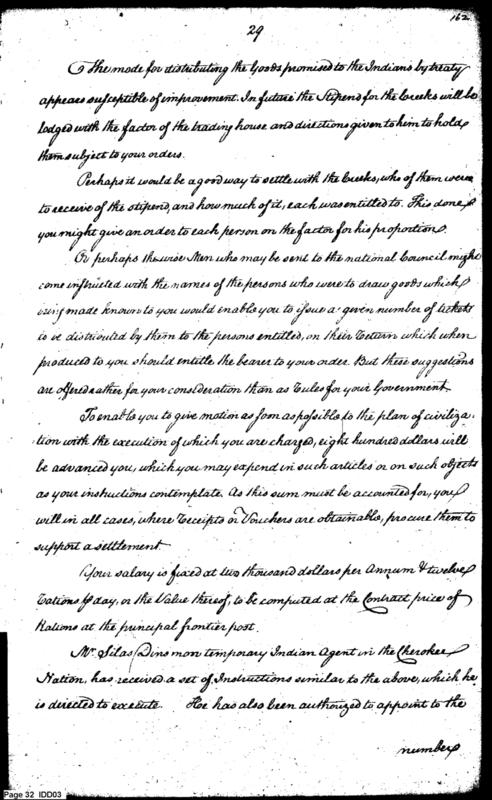 162
29
The mode for distributing the Goods promised to the Indians by treaty
appears susceptible of improvement. In future the Stipend for the Creeks will be
lodged with the factor of the trading house and directions given to him to hold
them subject to your orders.
Perhaps it would be a good way to settle with the Creeks, who of them were
to receive of the stipend, and how much of it, each was entitled to. This done
you might give an order to each person on the factor for his proportion.
Or perhaps the wise Men who may be sent to the national Council might
come instructed with the names of the persons who were to draw goods which
being made known to you would enable you to issue a given number of tickets
to be distributed by them to the persons entitled, on their Return which when
produced to you should entitle the bearer to your order. But these suggestions
are offered rather for your consideration than as Rules for your Government.
To enable you to give motion as soon as possible to the plan of civiliza-
tion with the execution of which you are charged, eight hundred dollars will
be advanced you, which you may expend in such articles or on such objects
as your instructions contemplate. As this sum must be accounted for, you
will in all cases, where Receipts or Vouchers are obtainable, procure them to
support a settlement.
Your salary is fixed at two thousand dollars per Annum & twelve
Rations ⅌ day, or the Value thereof, to be computed at the Contract price of
Rations at the principal frontier post.
Mr. Silas Dinsmon temporary Indian Agent in the Cherokee
Nation, has received a set of Instructions similar to the above, which he
is directed to execute. He has also been authorized to appoint to the
number
Page 32 IDD03